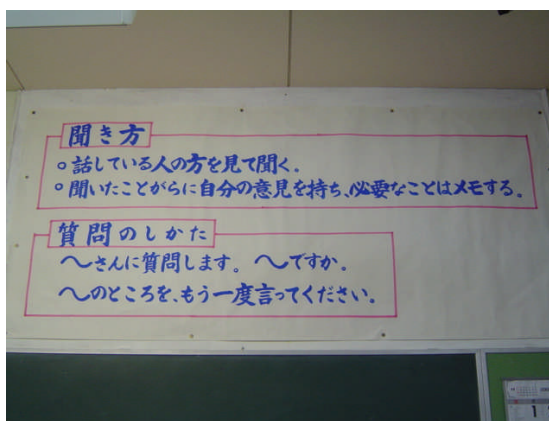 聞き方
○話している人の方を見て聞く。
○聞いたことがらに自分の意見を持ち、必要なことはメモする。
質問のしかた
〜さんに質問します。 〜ですか。
〜のところを、もう一度言ってください。
1